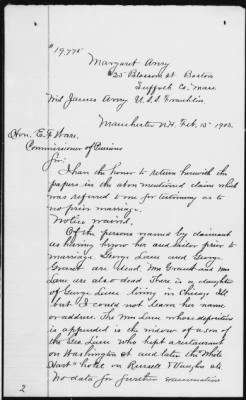 # 19,775
Margaret Avery
25 Blossom st Boston
Suffolk Co. Mass
Wid James Avery U.S.S. Franklin
Manchester N.H. Feb. 15" 1903.
Hon. E. F. Ware,
Commissioner of Pensions
Sir:
I have the honor to return herewith the
papers in the above mentioned claim which
was referred to me for testimony as to
no prior marriage.
Notice waived.
Of the persons named by claimant
as having known her and sailor prior to
marriage George Lane and George
Grant are dead. Mrs Grant and Mrs
Lane are also dead. There is a daughter
of George Lane living in Chicago Ill
but I could not learn her name
or address. The Mrs Lane whose deposition
is appended is the widow of a son of
the Geo. Lane who kept a restaurant
on Washington st and later the "White
Hart" hotel on Russell &
No data for further examination
2